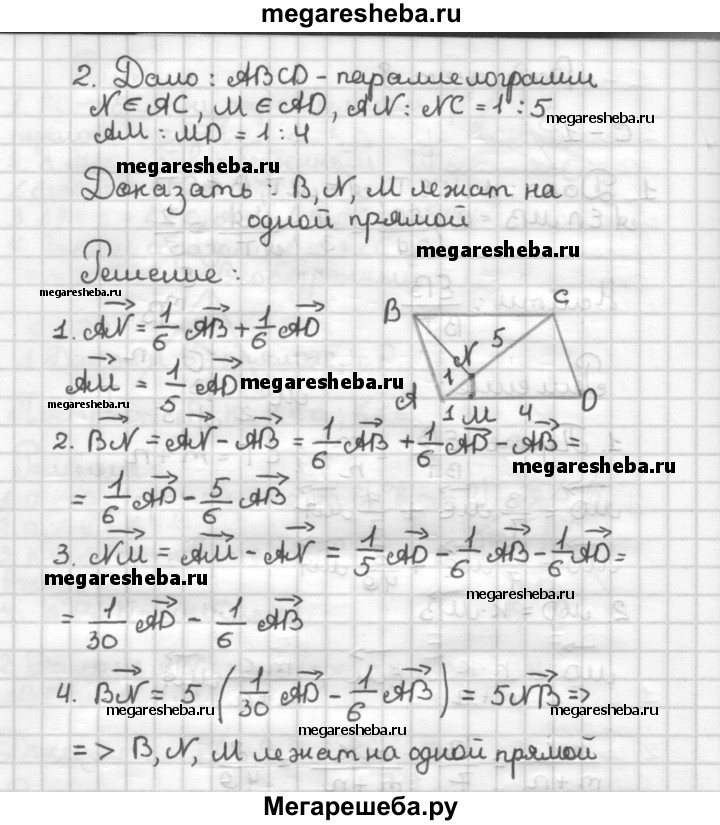 megaresheba.ru
2. Дано: ABCD - параллелограмм
N ∈ AC, M ∈ AD, AN : NC = 1 : 5
megaresheba.ru
AM : MD = 1 : 4
megaresheba.ru
Доказать: B, N, M лежат на
одной прямой
megaresheba.ru
Решение:
megaresheba.ru
1. \overrightarrow{AN} = \frac{1}{6}\overrightarrow{AB} + \frac{1}{6}\overrightarrow{AD}
B C
5
N
1
A D
1 M 4
\overrightarrow{AM} = \frac{1}{5}\overrightarrow{AD}
megaresheba.ru
megaresheba.ru
2. \overrightarrow{BN} = \overrightarrow{AN} - \overrightarrow{AB} = \frac{1}{6}\overrightarrow{AB} + \frac{1}{6}\overrightarrow{AD} - \overrightarrow{AB} =
megaresheba.ru
= \frac{1}{6}\overrightarrow{AD} - \frac{5}{6}\overrightarrow{AB}
3. \overrightarrow{NM} = \overrightarrow{AM} - \overrightarrow{AN} = \frac{1}{5}\overrightarrow{AD} - \frac{1}{6}\overrightarrow{AB} - \frac{1}{6}\overrightarrow{AD} =
megaresheba.ru
megaresheba.ru
= \frac{1}{30}\overrightarrow{AD} - \frac{1}{6}\overrightarrow{AB}
4. \overrightarrow{BN} = 5 \left( \frac{1}{30}\overrightarrow{AD} - \frac{1}{6}\overrightarrow{AB} \right) = 5\overrightarrow{NB} =>
megaresheba.ru megaresheba.ru
megaresheba.ru
=> B, N, M лежат на одной прямой
Мегарешеба.ру